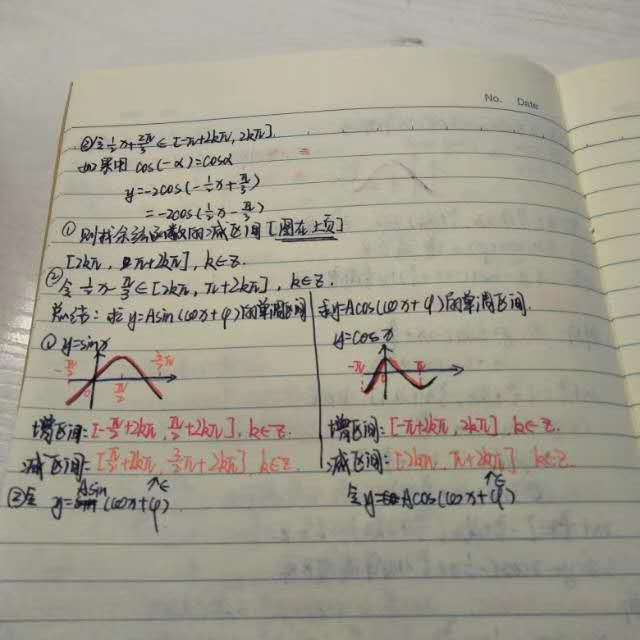 No. Date
②令½x+2π/3∈[-π+2kπ, 2kπ]
如果用 cos(-α)=cosα
y=-2cos(-½x+π/3)
=-2cos(½x-π/3)
① 则找余弦函数的减区间[图在上页]
[2kπ, π+2kπ], k∈Z.
② 令½x-π/3∈[2kπ, π+2kπ], k∈Z.
总结: 求y=Asin(ωx+φ)的单调区间
① y=sinx
-π/2 0 π/2 3/2π
增区间:[-π/2+2kπ, π/2+2kπ], k∈Z.
减区间:[π/2+2kπ, 3/2π+2kπ], k∈Z.
②令 y=Asin(ωx+φ) ↑∈
求y=Acos(ωx+φ)的单调区间.
y=cosx
-π 0 π
增区间:[-π+2kπ, 2kπ], k∈Z.
减区间:[2kπ, π+2kπ] k∈Z.
令y=Acos(ωx+φ) ↑∈